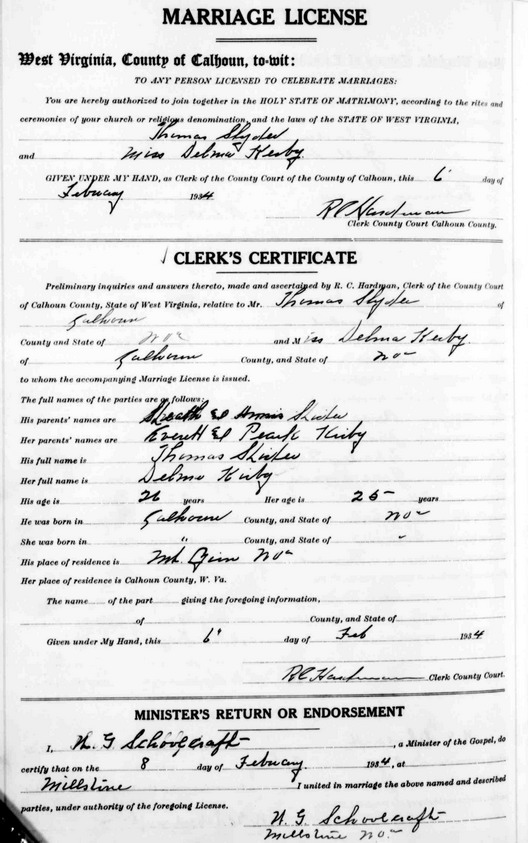 MARRIAGE LICENSE
West Virginia, County of Calhoun, to-wit:
TO ANY PERSON LICENSED TO CELEBRATE MARRIAGES:
You are hereby authorized to join together in the HOLY STATE OF MATRIMONY, according to the rites and
ceremonies of your church or religious denomination, and the laws of the STATE OF WEST VIRGINIA,
Thomas Slyder
and Miss Delma Kerby.
GIVEN UNDER MY HAND, as Clerk of the County Court of the County of Calhoun, this 6" day of
February 1934
R C Hardman
Clerk County Court Calhoun County.
CLERK'S CERTIFICATE
Preliminary inquiries and answers thereto, made and ascertained by R. C. Hardman, Clerk of the County Court
of Calhoun County, State of West Virginia, relative to Mr. Thomas Slyder of
Calhoun
County and State of and Miss Delma Kerby.
of Calhoun County, and State of
to whom the accompanying Marriage License is issued.
The full names of the parties are as follows:
His parents' names are
Her parents' names are Everett & Pearl Kirby
His full name is Thomas
Her full name is Delma Kirby
His age is 26 years Her age is 25 years
He was born in Calhoun County, and State of
She was born in " County, and State of "
His place of residence is Mt. Zion
Her place of residence is Calhoun County, W. Va.
The name of the part giving the foregoing information,
of County, and State of
Given under My Hand, this 6" day of Feb 1934
R C Hardman Clerk County Court.
MINISTER'S RETURN OR ENDORSEMENT
I, N. G Schoolcraft, a Minister of the Gospel, do
certify that on the 8 day of February 1934, at
Millstone I united in marriage the above named and described
parties, under authority of the foregoing License.
N. G Schoolcraft
Millstone